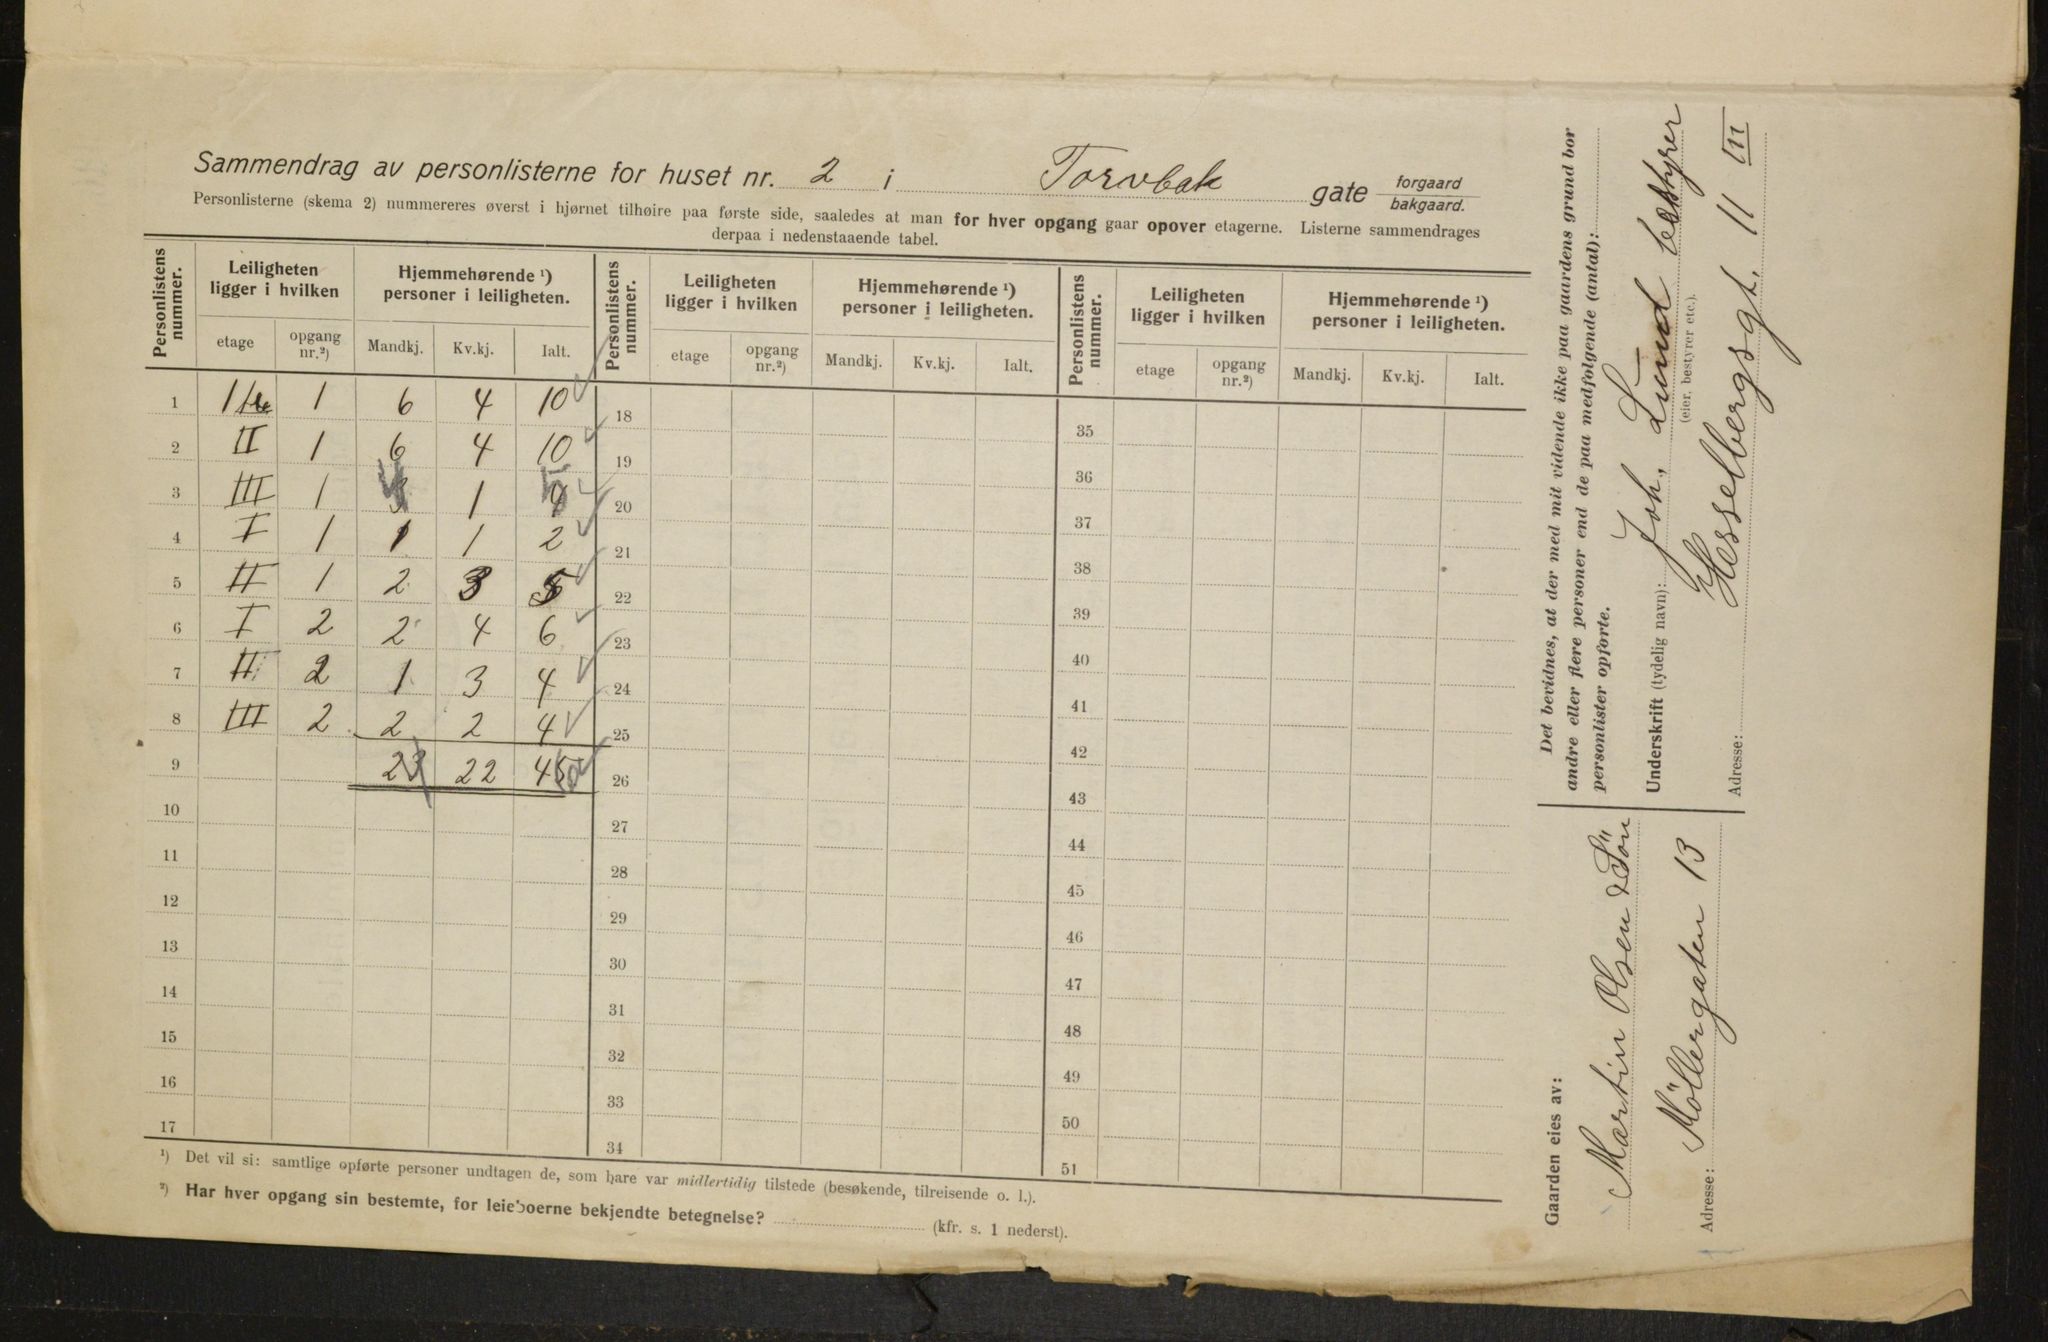 Sammendrag av personlisterne for huset nr. 2 i Torvbak gate forgaard bakgaard.
Personlisterne (skema 2) nummereres øverst i hjørnet tilhøire paa første side, saaledes at man for hver opgang gaar opover etagerne. Listerne sammendrages
derpaa i nedenstaaende tabel.
Personlistens nummer. Leiligheten ligger i hvilken Hjemmehørende ¹) personer i leiligheten. Personlistens nummer. Leiligheten ligger i hvilken Hjemmehørende ¹) personer i leiligheten. Personlistens nummer. Leiligheten ligger i hvilken Hjemmehørende ¹) personer i leiligheten.
etage opgang nr.²) Mandkj. Kv.kj. Ialt. etage opgang nr.²) Mandkj. Kv.kj. Ialt. etage opgang nr.²) Mandkj. Kv.kj. Ialt.
1 1 6 4 10 18 35
2 II 1 6 4 10 19 36
3 III 1 4 1 5 20 37
4 I 1 1 1 2 21 38
5 II 1 2 3 5 22 39
6 I 2 2 4 6 23 40
7 II 2 1 3 4 24 41
8 III 2 2 2 4 25 42
9 23 22 45 26 43
10 27 44
11 28 45
12 29 46
13 30 47
14 31 48
15 32 49
16 33 50
17 34 51
¹) Det vil si: samtlige opførte personer undtagen de, som bare var midlertidig tilstede (besøkende, tilreisende o. l.).
²) Har hver opgang sin bestemte, for leieboerne bekjendte betegnelse? (kfr. s. 1 nederst).
Det bevidnes, at der med mit vidende ikke paa gaardens grund bor
andre eller flere personer end de paa medfølgende (antal):
personlister opførte.
Underskrift (tydelig navn): Joh. Lund bestyrer
(eier, bestyrer etc.).
Adresse: Hesselbergsgt. 11 III
Gaarden eies av:
Martin Olsen & Sön
Adresse: Möllergaten 13